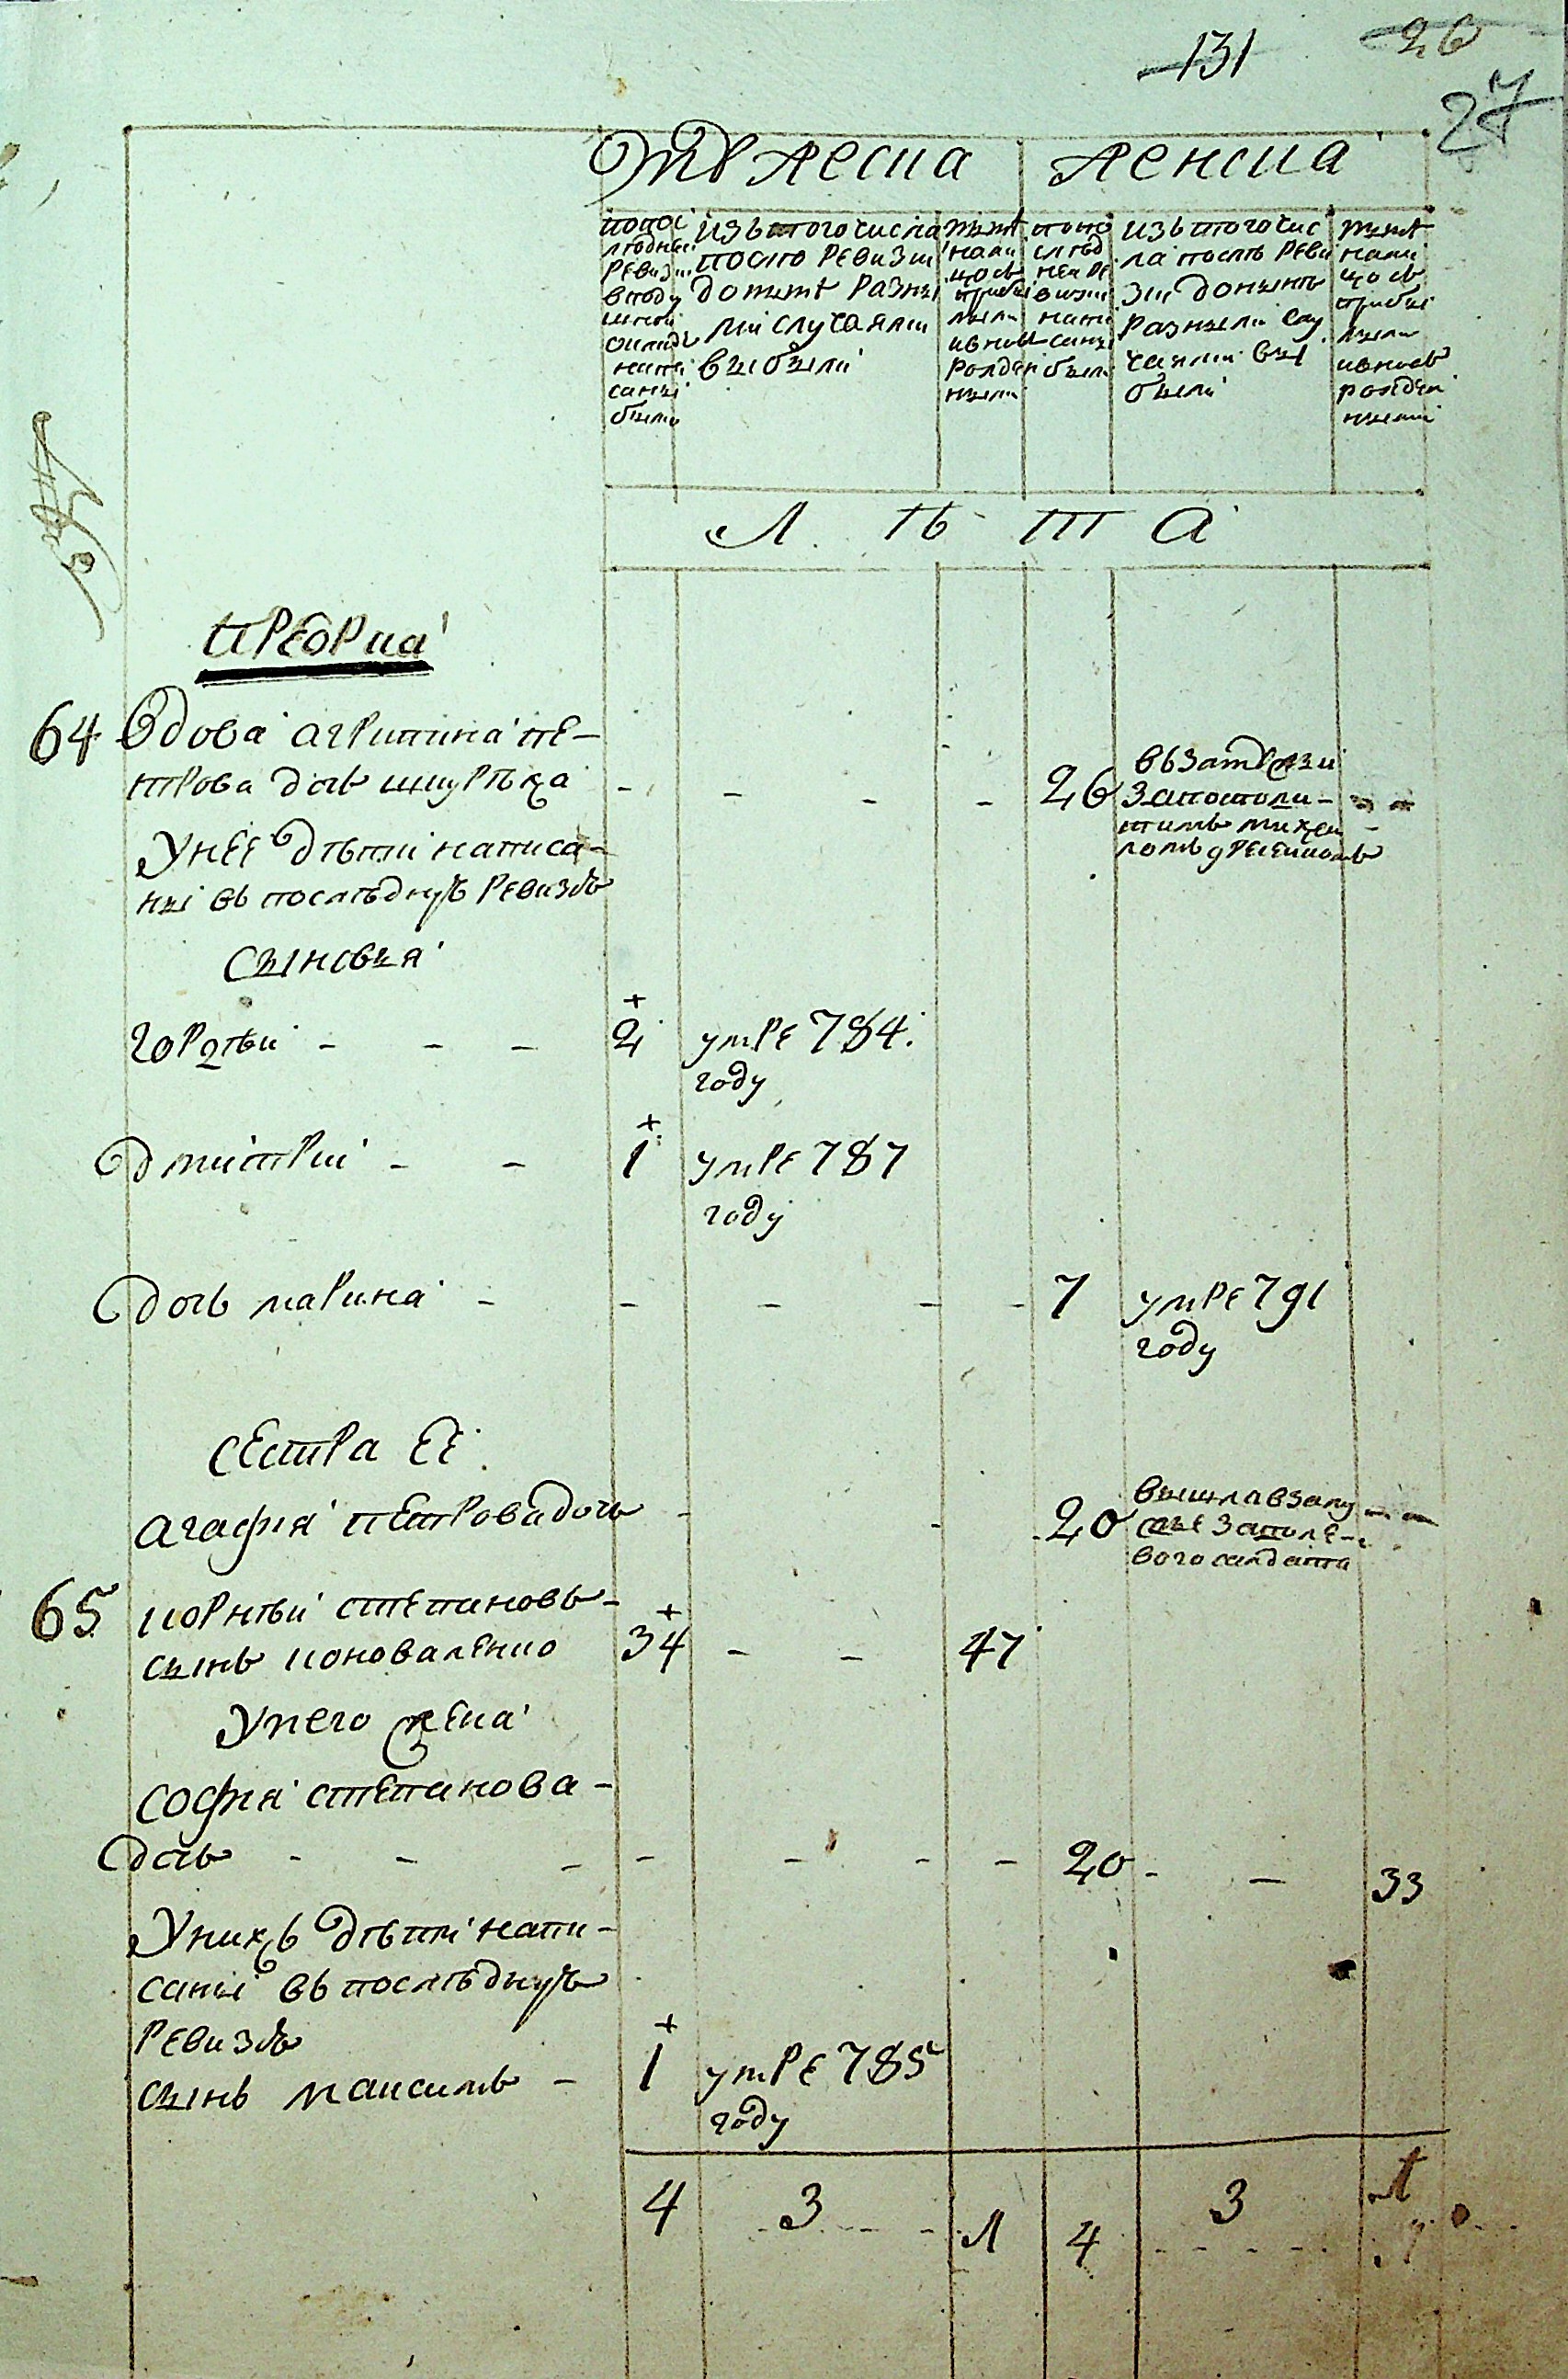 131 26
27
Мужеска женска
попос
лѣдней
ревизіи
вподу
шной
окладъ
напи
саны
были
изъ того числа
после ревизіи
доныне разны
ми случаями
выбыли
ныне
нали
цо съ
прибы
лыми
ивновъ
рожден
ными
попо
слѣд
ней ре
визіи
напи
саны
были
изъ того чис
ла послѣ реви
зіи донынѣ
разными слу
чаями вы
были
ныне
нали
цо съ
прибы
лыми
ивновь
рожден
ными
Л ѣ т а
64 Вдова агрипина пе-
трова дочь
26
У нее дѣти написа-
ны въ последную ревизію
сыновья
гордѣй - - - 2 умре 784
году
дмитрій - - 1 умре 787
году
дочь марина - - - - - 7 умре 791
году
сестра ее
агафія петрова дочь - - 20 вышла взаму
жье заполе-
вого салдата
65 корнѣй степановъ
сынъ коноваленко 34 - - 47
У него жена
софия степанова-
дочь - - - - - - - 20 - - 33
У нихъ дѣти напи-
саны въ последную
ревизію
сынъ максимъ - 1 умре 785
году
4 3 1 4 3 1